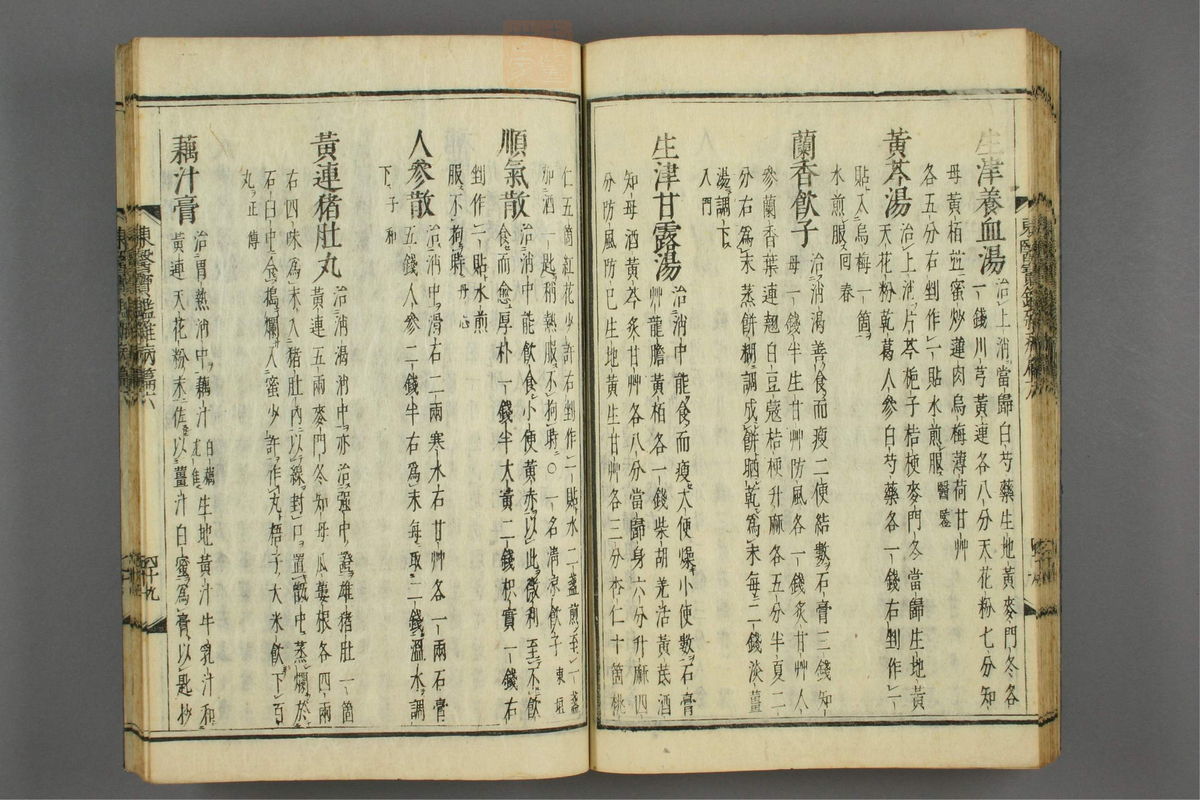 生津養血湯 治上消當歸白芍藥生地黃麥門冬各
一錢川芎黃連各八分天花粉七分知
母黃栢並蜜炒蓮肉烏梅薄荷甘艸
各五分右剉作一貼水煎服 醫鑑
黃芩湯 治上消片芩梔子桔梗麥門冬當歸生地黃
天花粉乾葛人參白芍藥各一錢右剉作一
貼入烏梅一箇
水煎服 回春
蘭香飮子 治消渴善食而瘦二便結數石膏三錢知
母一錢半生甘艸防風各一錢炙甘艸人
參蘭香葉連翹白豆蔻桔梗升麻各五分半夏二
分右爲末蒸餠糊調成餠晒乾爲末每二錢淡薑
湯調下
入門
生津甘露湯 治消中能食而瘦大便燥小便數石膏
艸龍膽黃栢各一錢柴胡羌活黃芪酒
知母酒黃芩炙甘艸各八分當歸身六分升麻四
分防風防己生地黃生甘艸各三分杏仁十箇桃
仁五箇紅花少許右剉作一貼水二盞煎至一盞
加酒一匙稍熱服不拘時○一名淸凉飮子 東垣
順氣散 治消中能飮食小便黃赤以此微利至不飮
食而愈厚朴一錢半大黃二錢枳實一錢右
剉作一貼水煎
服不拘時 丹心
人參散 治消中滑石二兩寒水石甘艸各一兩石膏
五錢人參二錢半右爲末每取二錢溫水調
下 子和
黃連猪肚丸 治消渴消中亦治强中證雄猪肚一箇
黃連五兩麥門冬知母瓜蔞根各四兩
右四味爲末入猪肚內以線封口置甑中蒸爛於
石臼中合搗爛入蜜少許作丸梧子大米飮下百
丸 正傳
藕汁膏 治胃熱消中藕汁 白藕尤佳 生地黃汁牛乳汁和
黃連天花粉末佐以薑汁白蜜爲膏以匙抄
東醫寶鑑雜病篇六
四十九